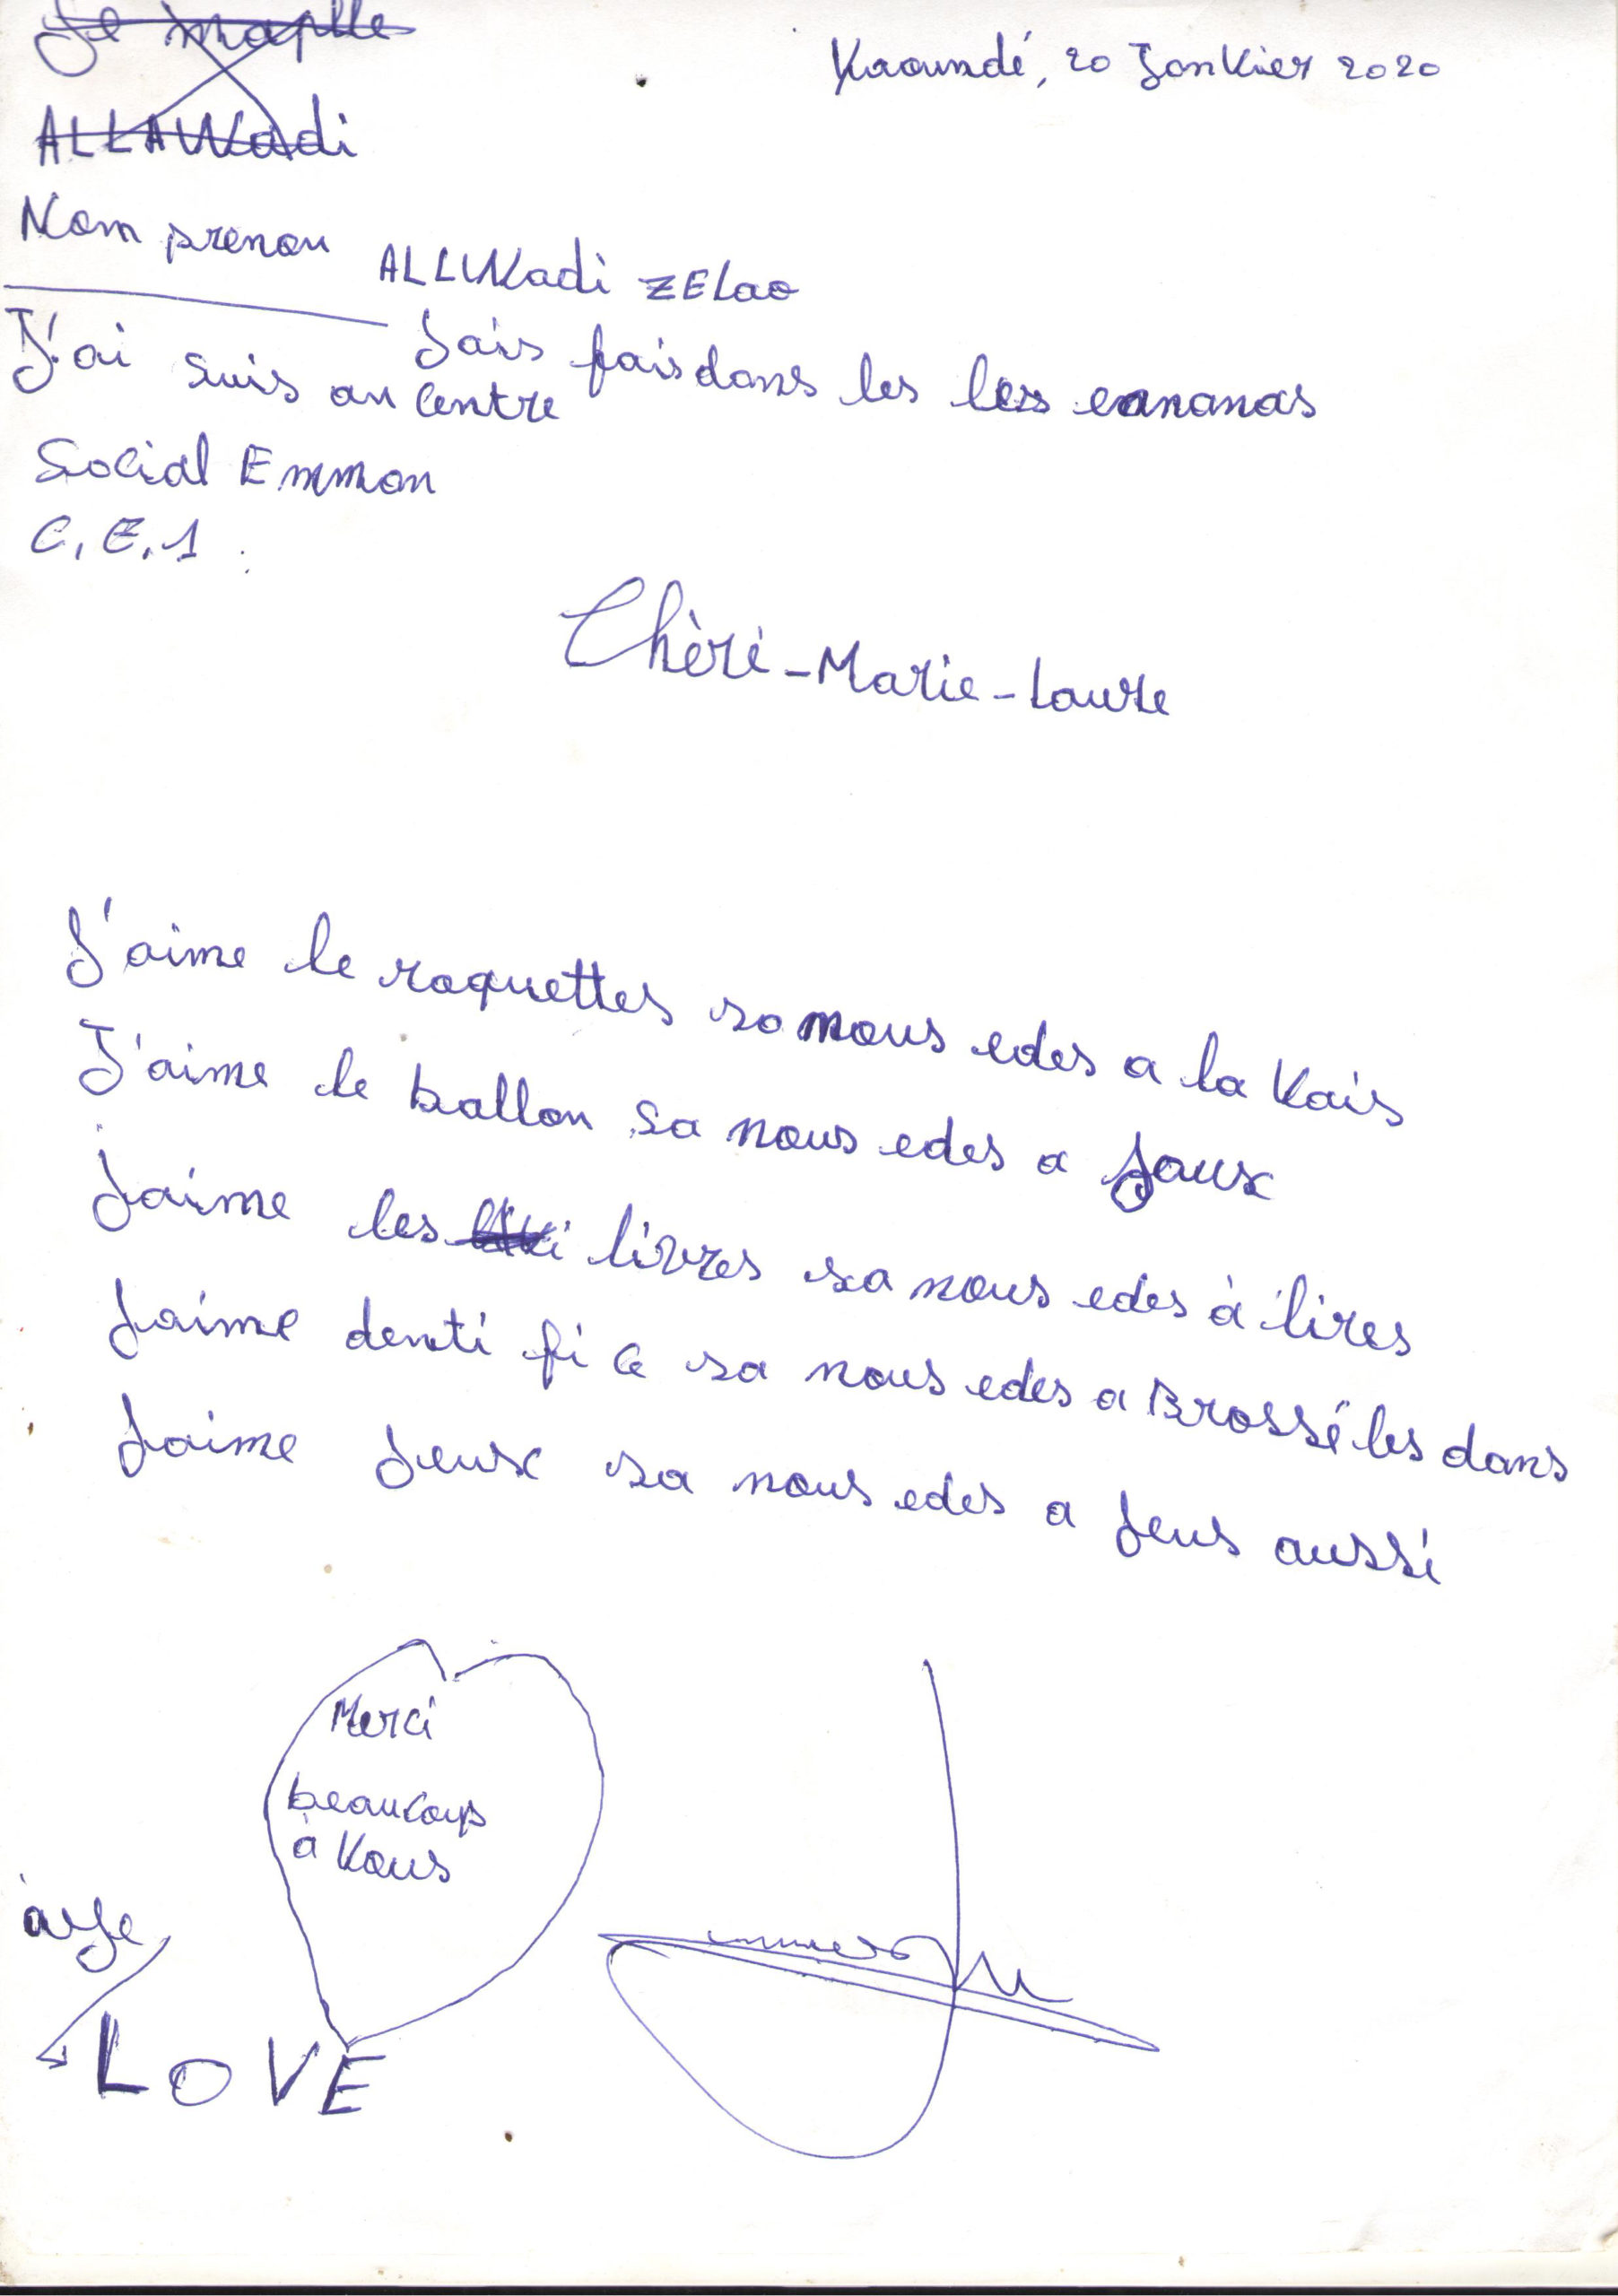 Je maplle
Yaoundé, 20 JanVier 2020
ALLAWadi
Nom prenon ALLWadi ZELao
J'ai suis au Centre
Jais fais dans les les eananas
Social Emman
C.E.1
Chèri-Marie-Laure
J'aime le raquettes sa nous edes a la Vais
J'aime le ballon sa nous edes a Jaux
Jaime les livres sa nous edes à lires
Jaime denti fi ce sa nous edes a Brossé les dans
Jaime Jeux sa nous edes a Jeus aussi
Merci
beaucoup
à Vous
LOVE